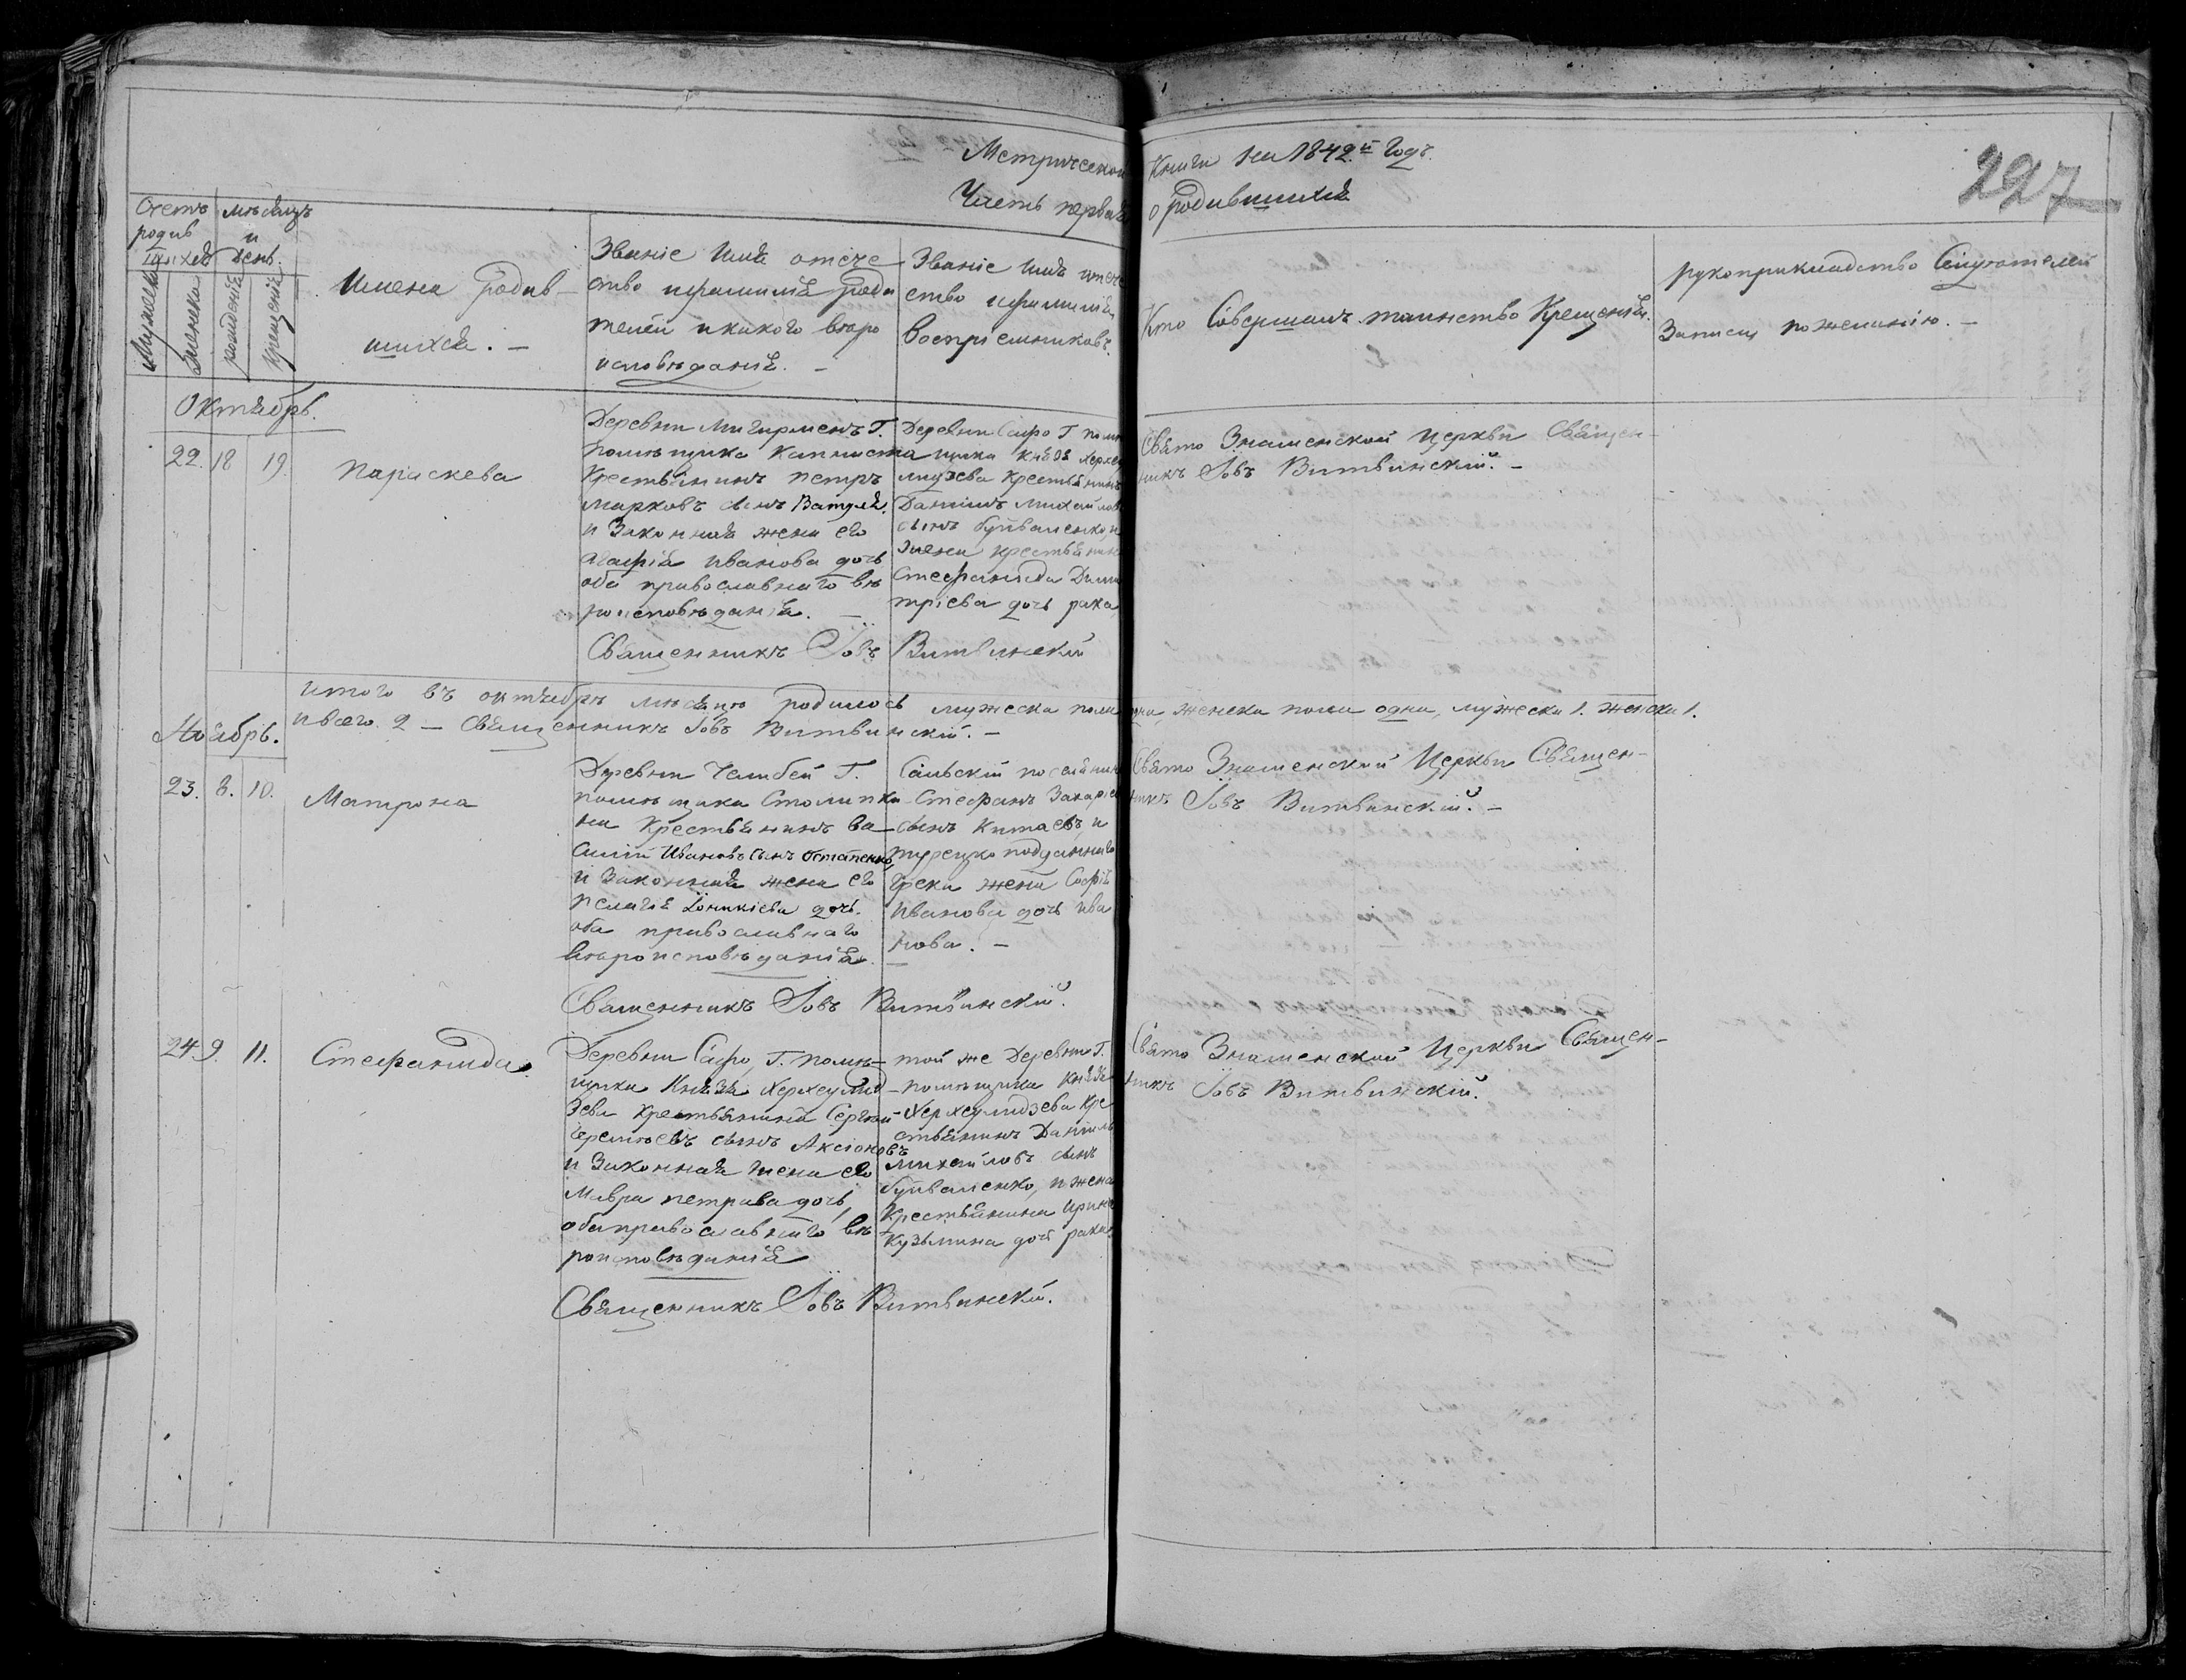 Метрической Книги на 1842.й Годъ.
Часть первая о родившихся
227
Счетъ родив шихся
Мужеска
Женска
мѣсяцъ и день.
рожденія
крещенія
Имена родив-
шихся. —
Званіе Имя отече
ство и фамилія роди
телей и какого вѣро
исповѣданія. —
Званіе Имя отече
ство и фамилія
воспріемниковъ.
Кто Совершалъ таинство Крещенія.
рукоприкладство Свидѣтелей
Записи по желанію. —
Октябрь.
22. 18 19.
Параскева
Деревни Мигирменъ Г.
помѣщика Капниста
Крестьянинъ петръ
марковъ сынъ
и Законная жена его
агафія иванова дочь
оба православнаго вѣ
роисповѣданія. —
Деревни Сафо Г помѣ
щика князя Херхеу
лидзева Крестьянинъ
Даніилъ михайлов
сынъ буйваленко, и
жена крестьянин
Стефанида Дими
тріева дочь
Свято Знаменской Церкви Священ-
никъ Іовъ Витвинскій. —
Священникъ Іовъ Витвинскій
итого въ октябрѣ мѣсяцѣ родилось мужеска пола одна, женска пола одна, мужеска 1. женска 1.
и всего 2 — Священникъ Іовъ Витвинскій. —
Ноябрь.
23. 8. 10.
Матрона
Деревни Челибей Г.
помѣщика Столипки-
на Крестьянинъ ва-
силій Ивановъ сынъ Остапенко
и Законная жена его
пелагія Іоникіева дочь.
оба православнаго
вѣроисповѣданія.
Сельскій поселянин
Стефанъ Захаріев
сынъ Китаевъ, и
турецко подданнаго
Грека жена Софія
Иванова дочь ива
нова. —
Свято Знаменской Церкви Священ-
никъ Іовъ Витвинскій. —
Священникъ Іовъ Витвинскій.
24. 9. 11.
Стефанида.
Деревни Сафо, Г. помѣ-
щика Князя Херхеулид-
зева Крестьянина Сергѣй
Еремѣевъ сынъ Аксіоновъ
и Законная жена его
Мавра петрова дочь,
оба православнаго вѣ-
роисповѣданія
той же Деревни Г.
помѣщика Князя
Херхеулидзева Кре
стьянинъ Даніилъ
Михайловъ сынъ
буйваленко, и жена
Крестьянина Ирина
Кузьмина дочь
Свято Знаменской Церкви Священ-
никъ Іовъ Витвинскій.
Священникъ Іовъ Витвинскій.